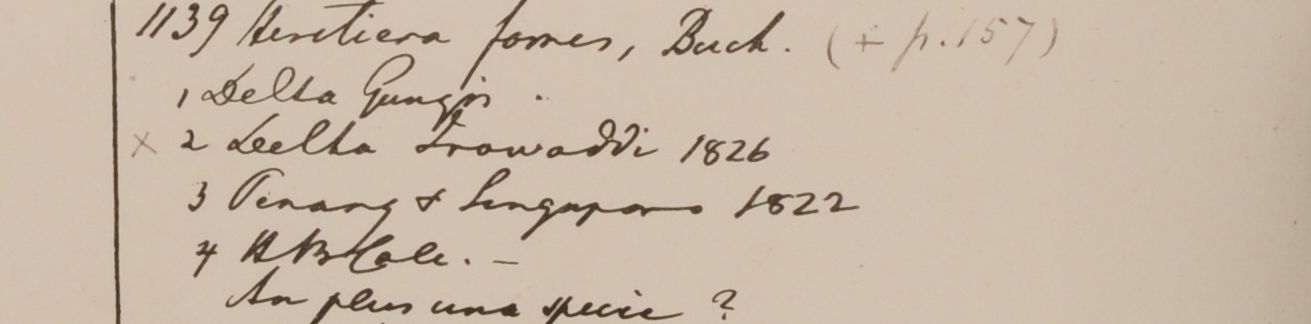 1139 Heretiera fomes, Buch. (+ p. 157)
1 Delta Gungis.
x 2 Delta Irowaddi 1826
3 Penang & Singapore 1822
4 HBCalc. –
An plus una specie ?